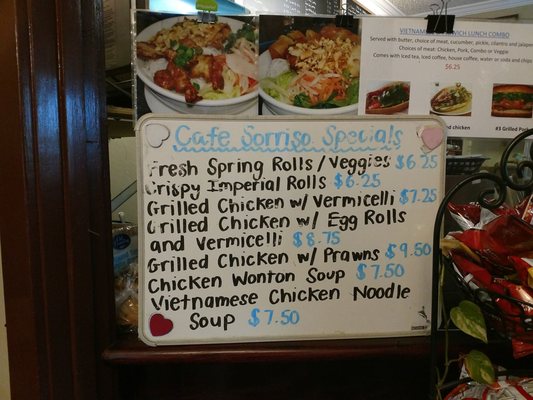 VIETNAMESE SANDWICH LUNCH COMBO
Served with butter, choice of meat, cucumber, pickle, cilantro and jalapeno
Choices of meat: Chicken, Pork, Combo or Veggie
Comes with Iced tea, Iced coffee, house coffee, water or soda and chips
$6.25
#3 Grilled Pork
Cafe Sorriso Specials
Fresh Spring Rolls/Veggies $6.25
Crispy Imperial Rolls $6.25
Grilled Chicken w/ Vermicelli $7.25
Grilled Chicken w/ Egg Rolls
and Vermicelli $8.75
Grilled Chicken w/ Prawns $9.50
Chicken Wonton Soup $7.50
Vietnamese Chicken Noodle
Soup $7.50